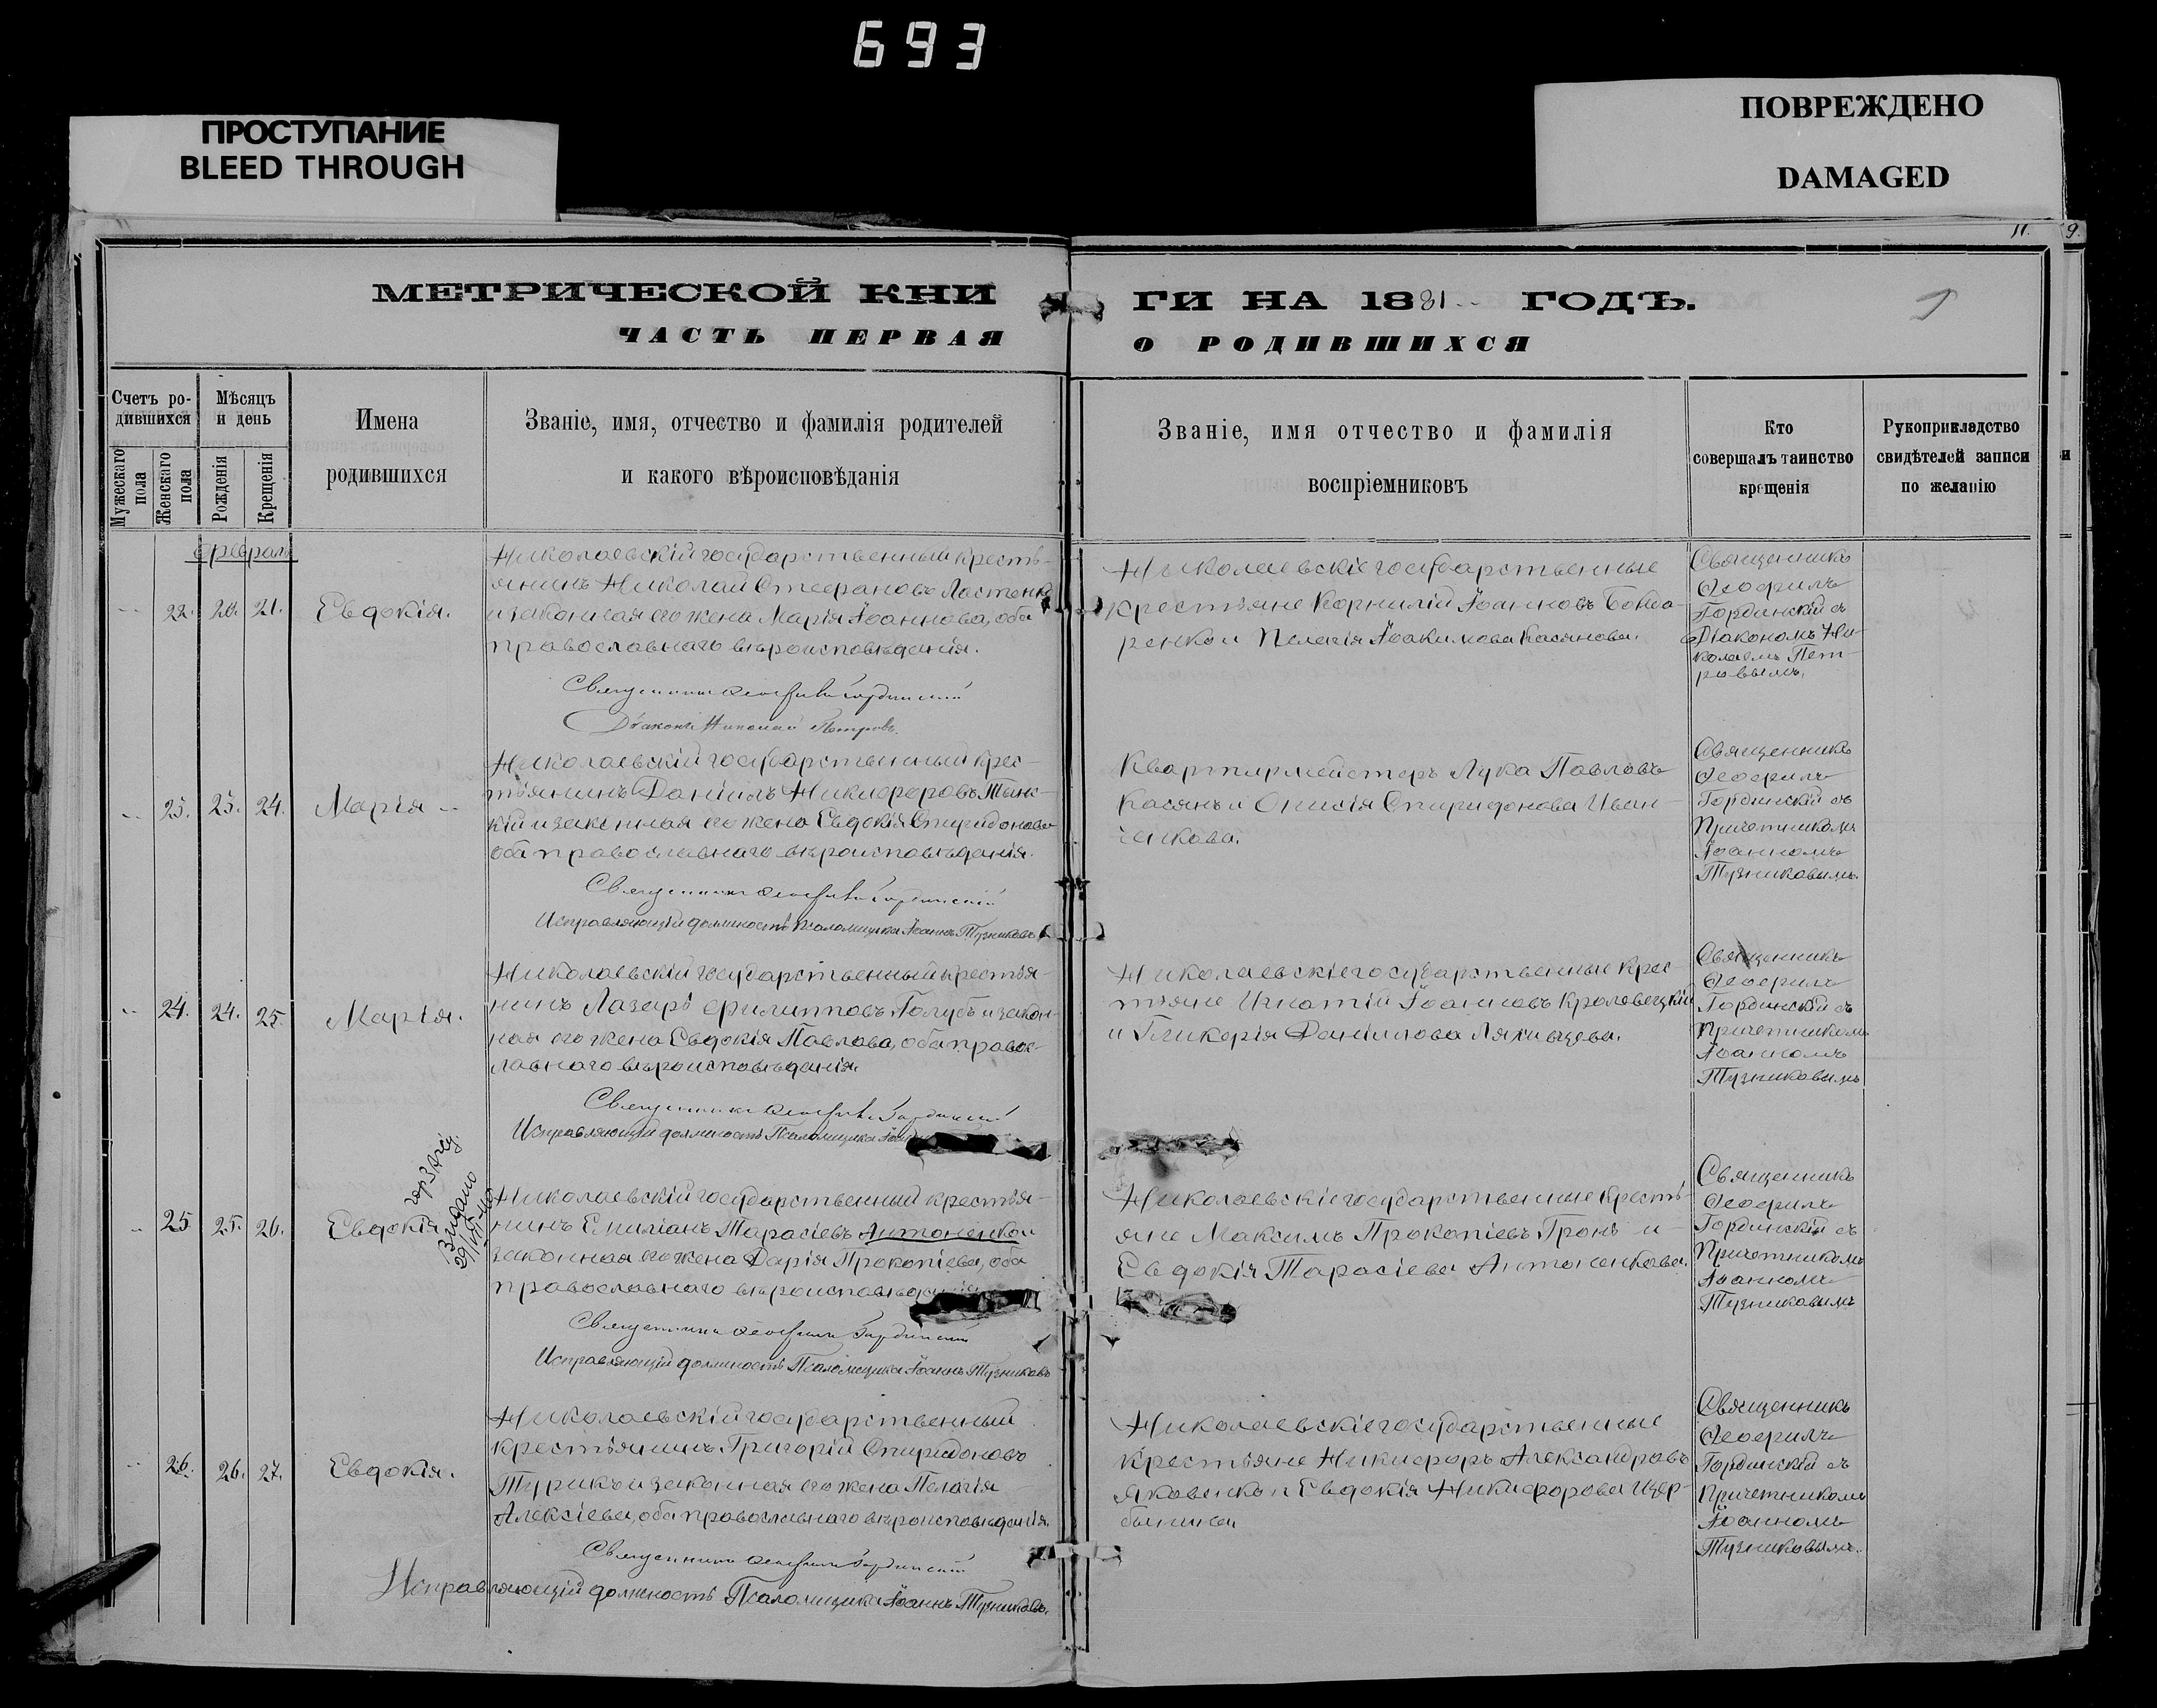 693
ПРОСТУПАНИЕ
BLEED THROUGH
ПОВРЕЖДЕНО
DAMAGED
11. 9.
МЕТРИЧЕСКОЙ КНИ
ГИ НА 1881 ГОДЪ.
ЧАСТЬ ПЕРВАЯ
О РОДИВШИХСЯ
Счетъ ро-
дившихся
Мужескаго пола
Женскаго пола
Мѣсяцъ
и день
Рожденія
Крещенія
Имена
родившихся
Званіе, имя, отчество и фамилія родителей
и какого вѣроисповѣданія
Званіе, имя отчество и фамилія
воспріемниковъ
Кто
совершалъ таинство
крещенія
Рукоприкладство
свидѣтелей записи
по желанію
22. 20. 21. Евдокія.
Николаевскій государственный кресть-
янинъ Николай Стефановъ
и законная его жена Марія Іоаннова, оба
православнаго вѣроисповѣданія.
Священникъ Ѳеофилъ Гординскій
Діаконъ Николай Петровъ.
Николаевскіе государственные
крестьяне Корнилій Іоанновъ Бонда-
ренко и Пелагія Іоакимова Касянова.
Священникъ
Ѳеофилъ
Гординскій съ
Діакономъ Ни-
колаемъ Пет-
ровымъ.
23. 23. 24. Марія
Николаевскій государственный крес-
тьянинъ Даніилъ Никифоровъ
и законная его жена Евдокія Спиридонова
оба православнаго вѣроисповѣданія.
Священникъ Ѳеофилъ Гординскій
Исправляющій должность Псаломщика Іоаннъ Тузниковъ
Квартирмейстеръ Лука Павловъ
Касянъ и Онисія Спиридонова Иван-
ченкова.
Священникъ
Ѳеофилъ
Гординскій съ
Причетникомъ
Іоанномъ
Тузниковымъ.
24. 24. 25. Марія.
Николаевскій государственный крестья-
нинъ Лазарь Филипповъ Голубъ и закон-
ная его жена Евдокія Павлова, оба правос-
лавнаго вѣроисповѣданія.
Священникъ Ѳеофилъ Гординскій
Исправляющій должность Псаломщика
Николаевскіе государственные крес-
тьяне Игнатій Іоанновъ Кролевецкій
и Гликерія Даніилова
Священникъ
Ѳеофилъ
Гординскій съ
Причетникомъ
Іоанномъ
Тузниковымъ
25. 25. 26. Евдокія
Николаевскій государственный крестья-
нинъ Емиліанъ Тарасіевъ Антоненко и
законная его жена Дарія Прокопіева, оба
православнаго вѣроисповѣданія
Священникъ Ѳеофилъ Гординскій
Исправляющій должность Псаломщика Іоаннъ Тузниковъ
Николаевскіе государственные кресть-
яне Максимъ Прокопіевъ Гронь и
Евдокія Тарасіева Антоненкова.
Священникъ
Ѳеофилъ
Гординскій съ
Причетникомъ
Іоанномъ
Тузниковымъ
26. 26. 27. Евдокія.
Николаевскій государственный
крестьянинъ Григорій Спиридоновъ
Турикъ и законная его жена Пелагія
Алексіева, оба православнаго вѣроисповѣданія.
Священникъ Ѳеофилъ Гординскій
Исправляющій должность Псаломщика Іоаннъ Тузниковъ.
Николаевскіе государственные
крестьяне Никифоръ Александровъ
Яковенко и Евдокія Никифорова Щер-
бынина
Священникъ
Ѳеофилъ
Гординскій съ
Причетникомъ
Іоанномъ
Тузниковымъ.